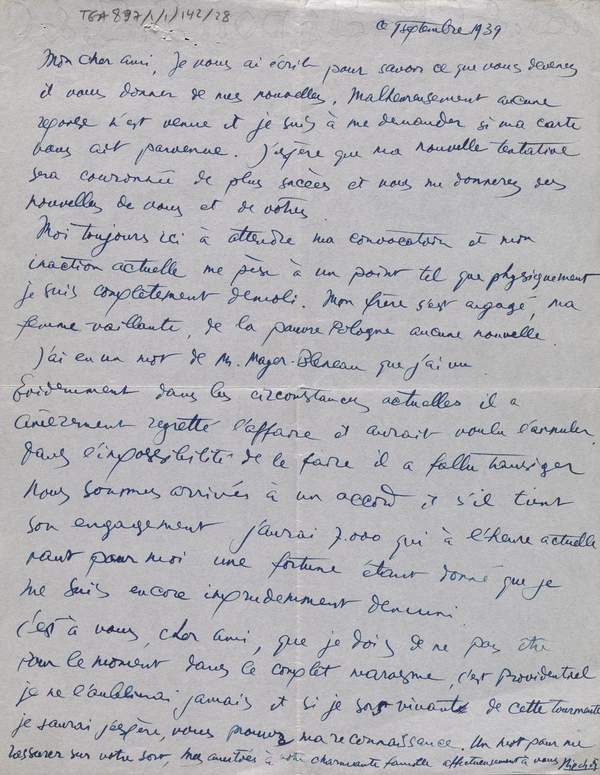 TGA 897/1/1/142/28
ce septembre 1939
Mon cher ami, Je vous ai écrit pour savoir ce que vous devenez
et vous donner de mes nouvelles. Malheureusement aucune
reponse n'est venue et je suis à me demander si ma carte
vous ait parvenue. J'espère que ma nouvelle tentative
sera couronnée de plus succès et vous me donnerez des
nouvelles de vous et de votres.
Moi toujours ici à attendre ma convocation et mon
inaction actuelle me pèse à un point tel que physiquement
je suis completement demoli. Mon frère s'est engagé, ma
femme vaillante, de la pauvre Pologne aucune nouvelle.
J'ai eu un mot de M. Mayer que j'ai vu
Evidemment dans les circonstances actuelles il a
amèrement regretté l'affaire et aurait voulu l'annuler.
Dans l'impossibilité de le faire il a fallu transiger
Nous sommes arrivés à un accord et s'il tient
son engagement j'aurai 7.000 qui à l'heure actuelle
vaut pour moi une fortune étant donné que je
me suis encore imprudemment demuni.
C'est à vous, cher ami, que je dois de ne pas être
pour le moment dans le complet marasme, c'est providentiel
je ne l'oublierai jamais et si je sors vivante de cette tourmente
je saurai j'espère, vous prouver ma reconnaissance. Un mot pour me
rassurer sur votre sort. Mes amitiés à votre charmante famille affectueusement à vous